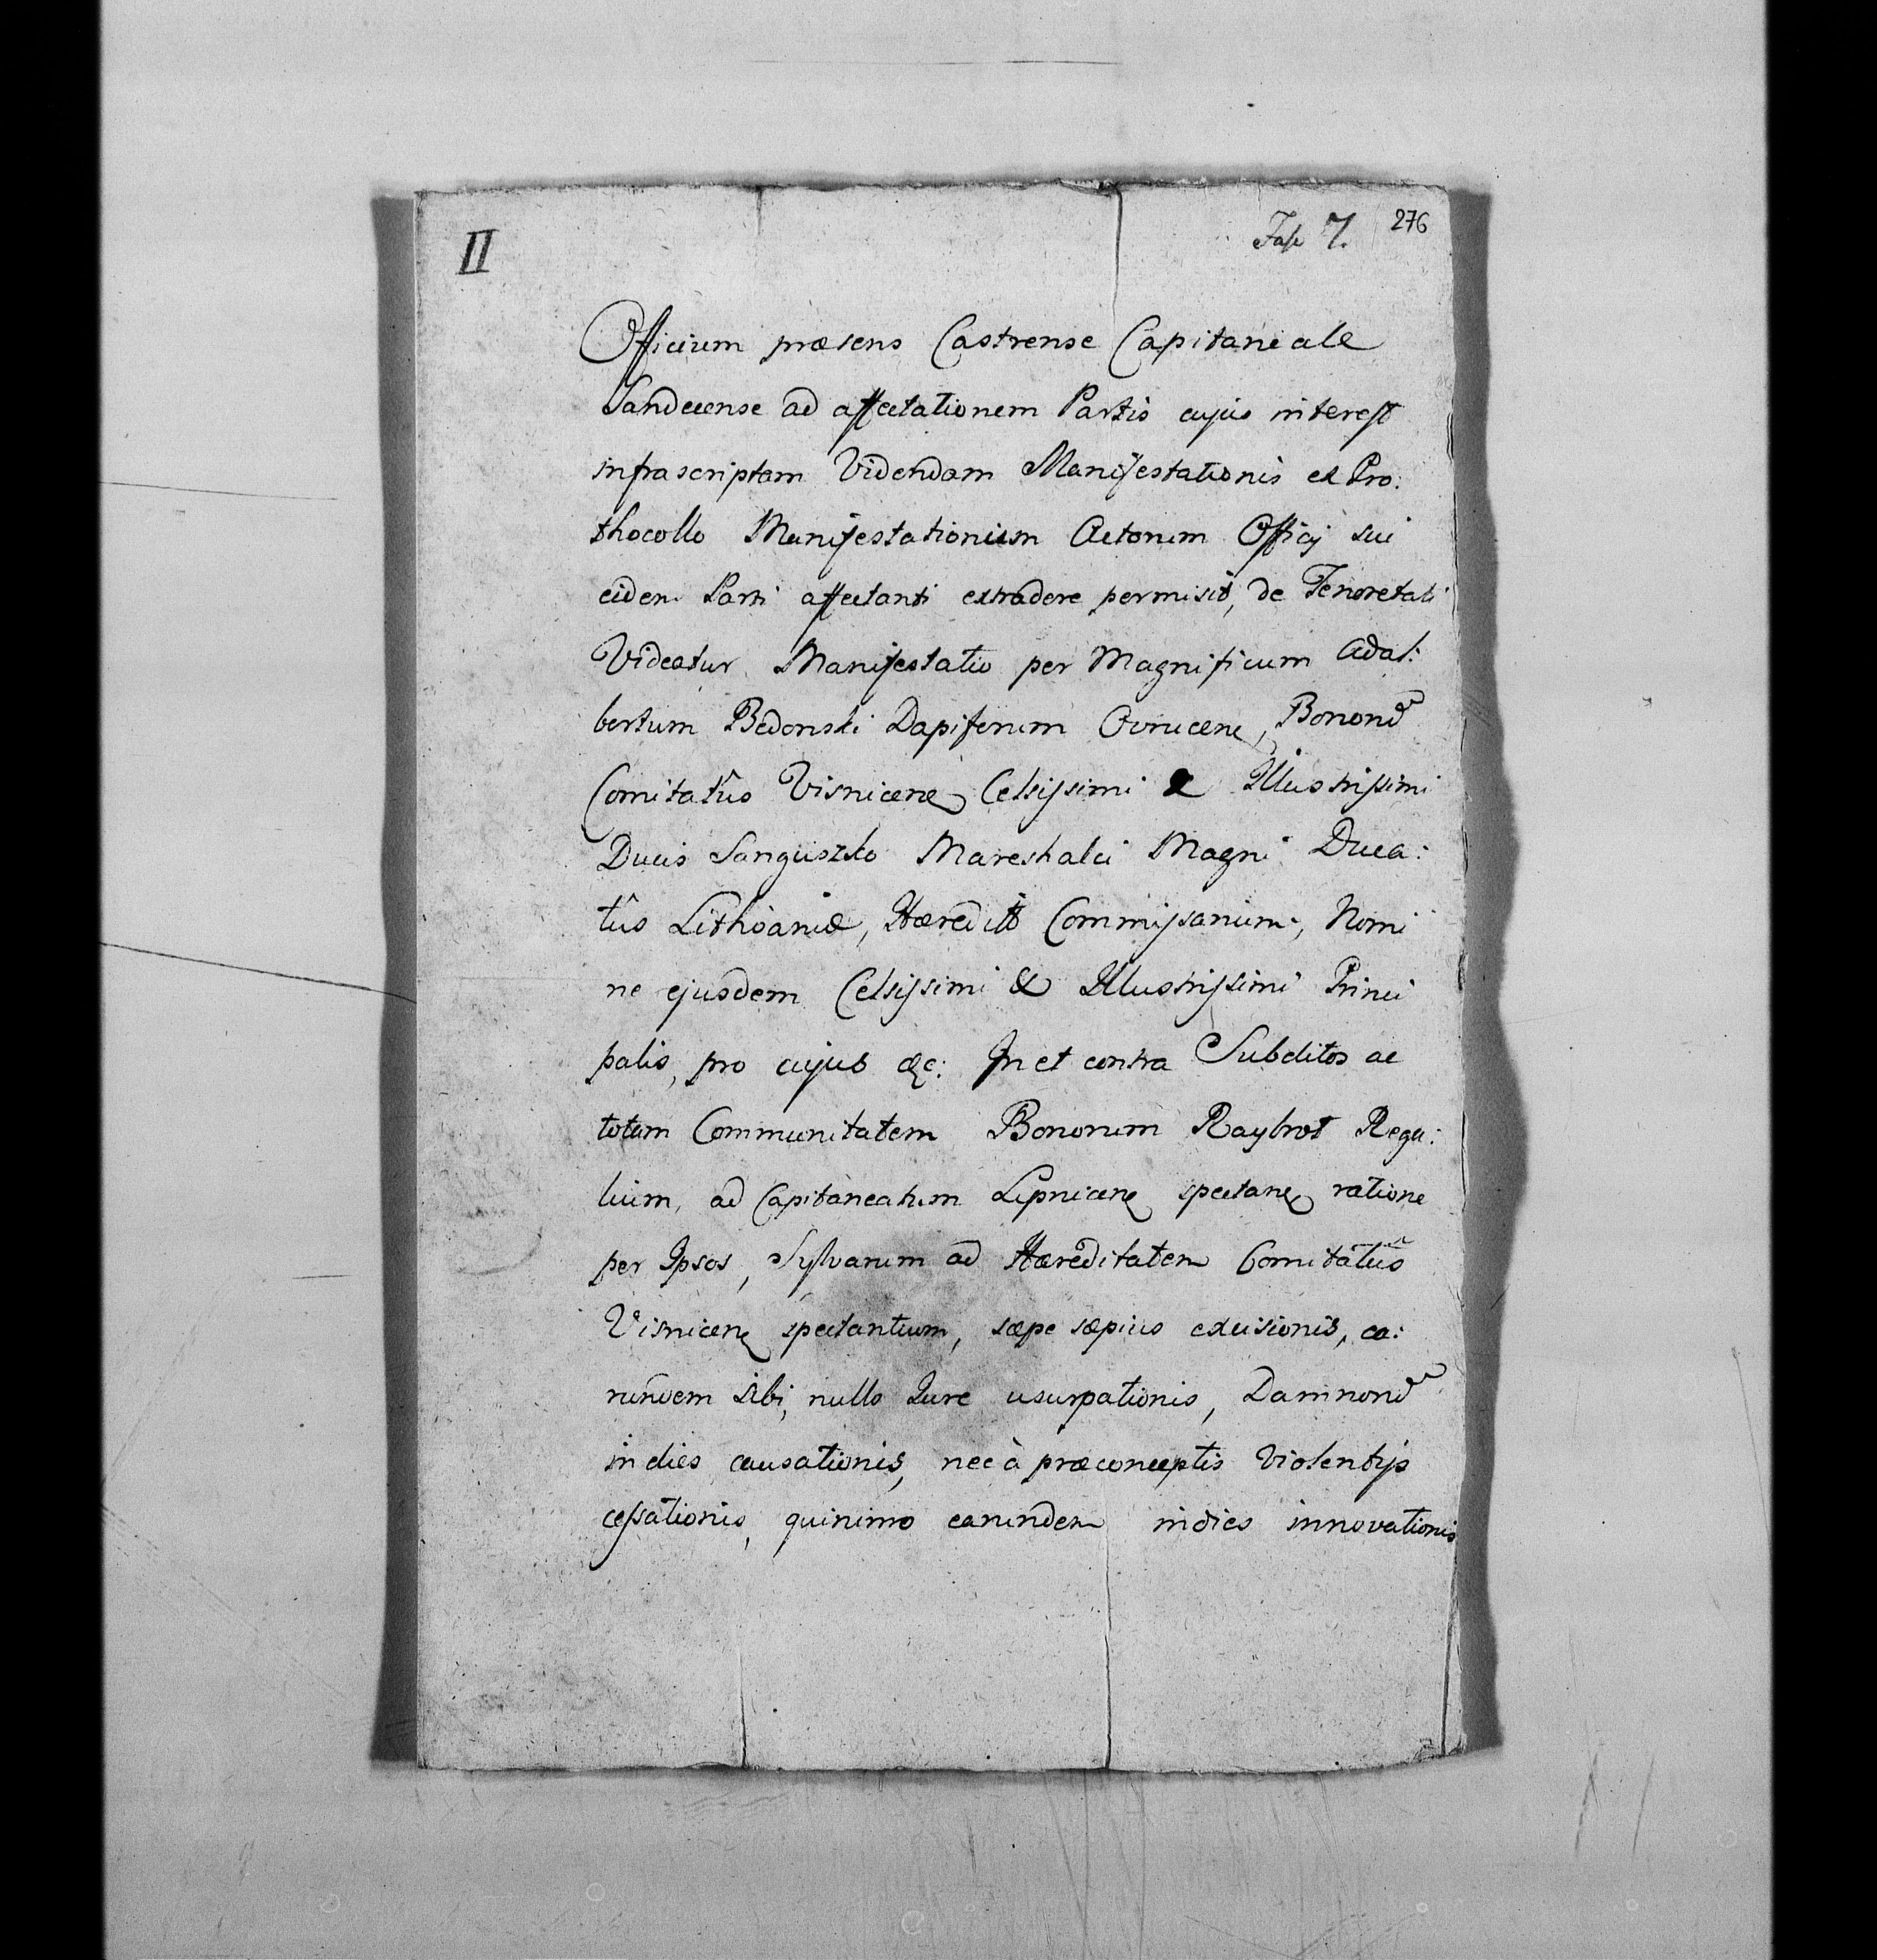 II
Fasc 7.
276
Officium præsens Castrense Capitaneale
Sandecense ad affectationem Partis cujus interest
infrascriptam Videndam Manifestationis ex Pro:
thocollo Manifestationum Actorum Officij sui
eidem Parti affectanti extradere permisit, de Tenore tali
Videatur Manifestatio per Magnificum Adal:
bertum Bedonski Dapiferum Ovrucens, Bonorũ
Comitatûs Visnicens Celsissimi & Illustrissimi
Ducis Sanguszko Mareshalci Magni Duca:
tûs Lithvaniæ, Hæredit̃ Commissarium, Nomi
ne ejusdem Celsissimi & Illustrissimi Princi
palis, pro cujus &c: In et contra Subditos ac
totam Communitatem Bonorum Raybrot Rega:
lium, ad Capitaneatum Lipnicens spectans ratione
per Ipsos, Sylvarum ad Hæreditatem Comitatûs
Visnicens spectantium, sæpe sæpius excisionis, ea:
rundem sibi, nullo Jure usurpationis, Damnorũ
indies causationis, nec à præconceptis Violentijs
cessationis, quinimo earundem indies innovationis